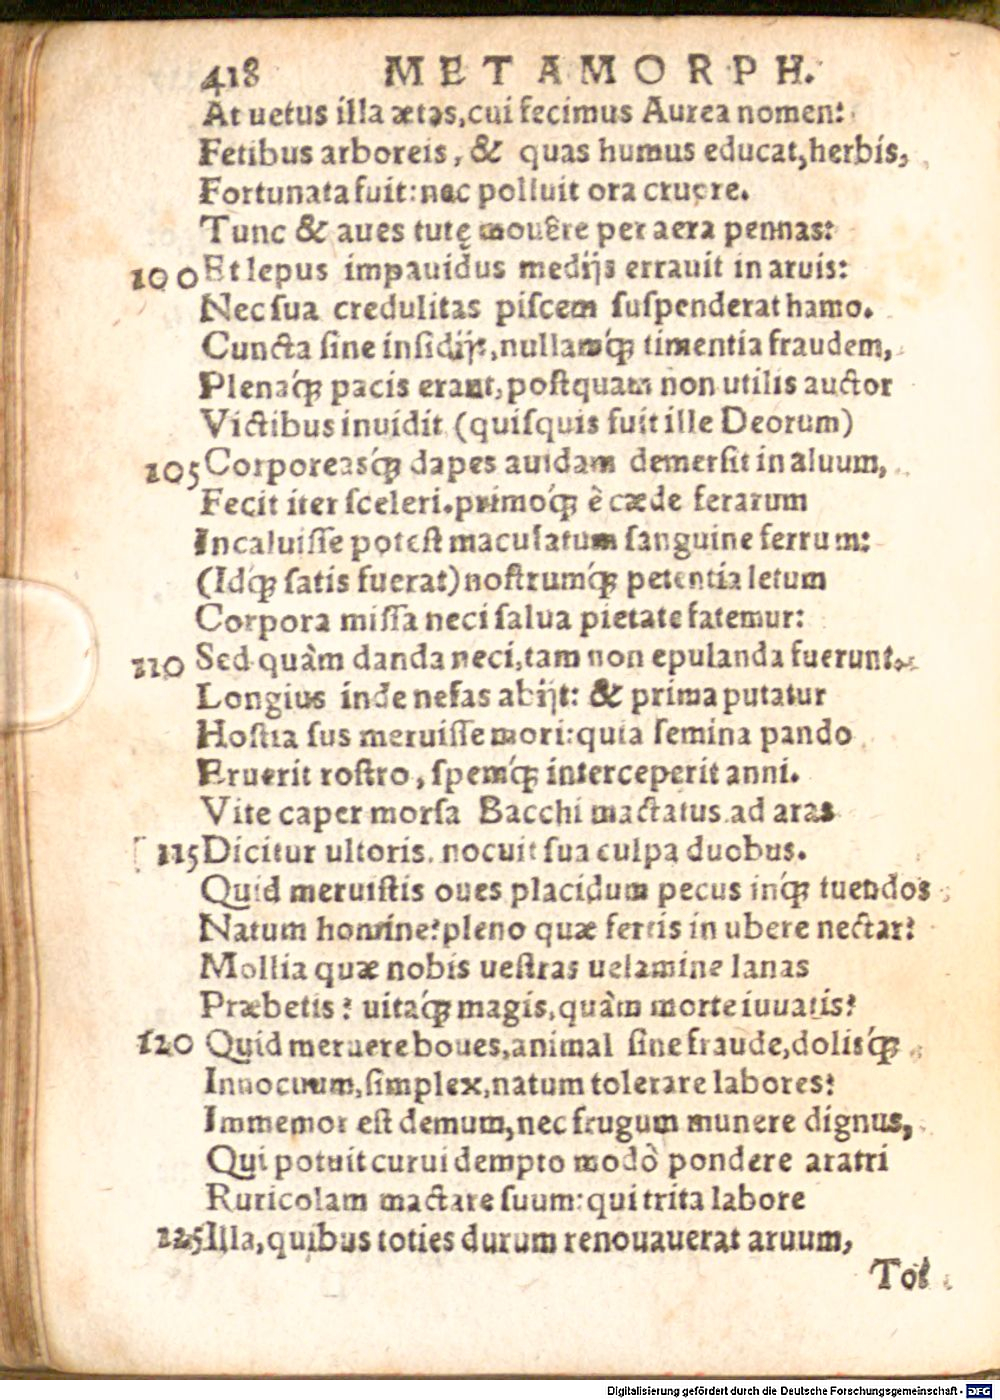 418 METAMORPH.
At uetus illa ætas, cui fecimus Aurea nomen:
Fetibus arboreis, & quas humus educat, herbis,
Fortunata fuit: nec polluit ora cruore.
Tunc & aues tutę mouêre per aera pennas:
100 Et lepus impauidus medijs errauit in aruis:
Nec sua credulitas piscem suspenderat hamo.
Cuncta sine insidijs, nullamq́; timentia fraudem,
Plenaq́; pacis erant, postquam non utilis auctor
Victibus inuidit (quisquis fuit ille Deorum)
105 Corporeasq́; dapes auidam demersit in aluum,
Fecit iter sceleri. primoq́; è cæde ferarum
Incaluisse potest maculatum sanguine ferrum:
(Idq́; satis fuerat) nostrumq́; petentia letum
Corpora missa neci salua pietate fatemur:
110 Sed quàm danda neci, tam non epulanda fuerunt.
Longius inde nefas abijt: & prima putatur
Hostia sus meruisse mori: quia semina pando
Eruerit rostro, spemq́; interceperit anni.
Vite caper morsa Bacchi mactatus ad aras
115 Dicitur ultoris. nocuit sua culpa duobus.
Quid meruistis oues placidum pecus inq́; tuendos
Natum homine? pleno quæ fertis in ubere nectar?
Mollia quæ nobis uestras uelamine lanas
Præbetis? uitaq́; magis, quàm morte iuuatis?
120 Quid meruere boues, animal sine fraude, dolisq́;
Innocuum, simplex, natum tolerare labores?
Immemor est demum, nec frugum munere dignus,
Qui potuit curui dempto modò pondere aratri
Ruricolam mactare suum: qui trita labore
125 Illa, quibus toties durum renouauerat aruum,
Tot
Digitalisierung gefördert durch die Deutsche Forschungsgemeinschaft - DFG